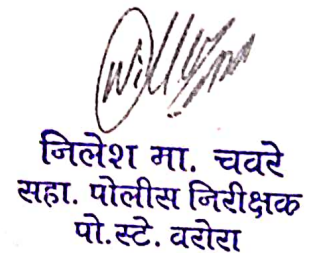 जिलेश मा. चवरे
सहा. पोलीस निरीक्षक
पो.स्टे. वरोरा